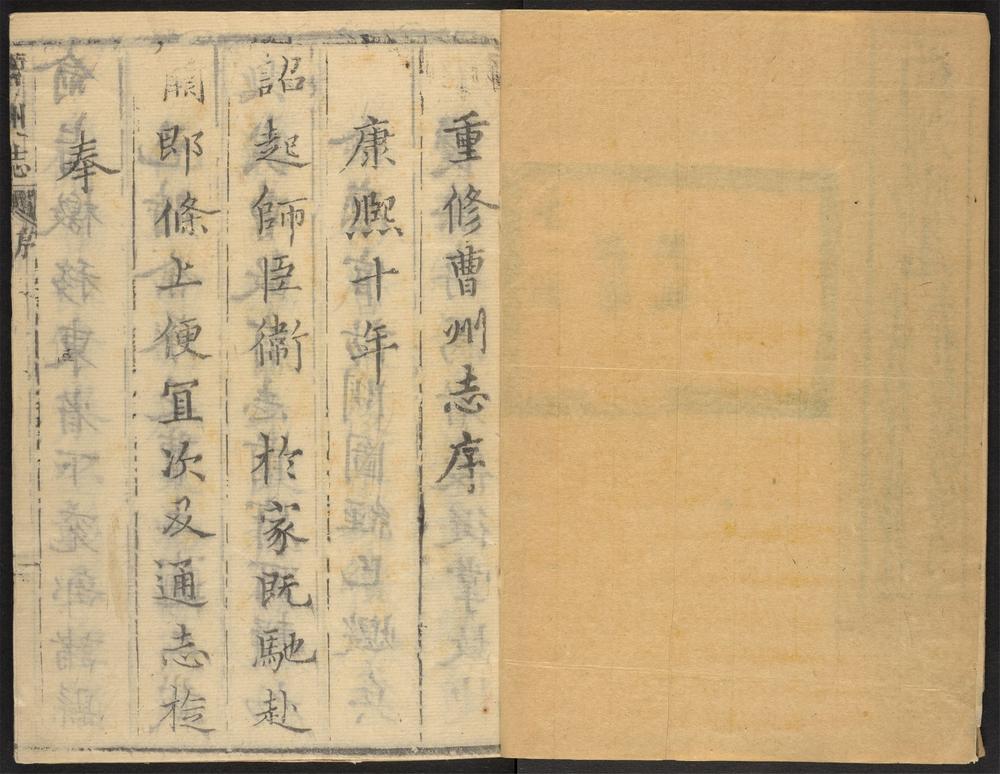 重修曹州志序
康熈十年
詔起師臣衛於家既馳赴
闕郎條上便宜次及通志於
奉
曹州志
序